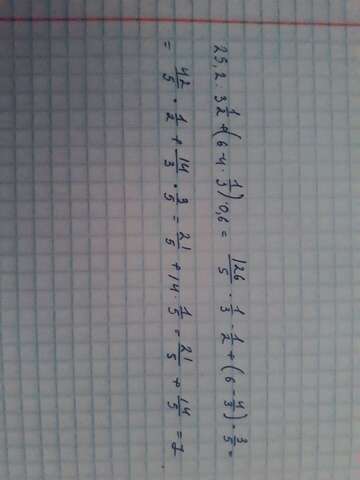 25,2 · 3 1/2 + (6 - 4 · 1/3) · 0,6 = 126/5 · 1/3 · 1/2 + (6 - 4/3) · 3/5 =
= 42/5 · 1/2 + 14/3 · 3/5 = 21/5 + 14 · 1/5 = 21/5 + 14/5 = 7